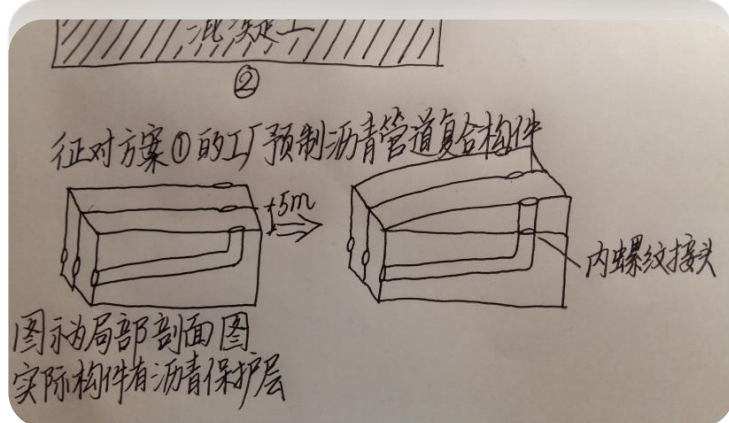 混凝土
②
征对方案①的工厂预制沥青管道复合构件
+5m
内螺纹接头
图示为局部剖面图
实际构件有沥青保护层